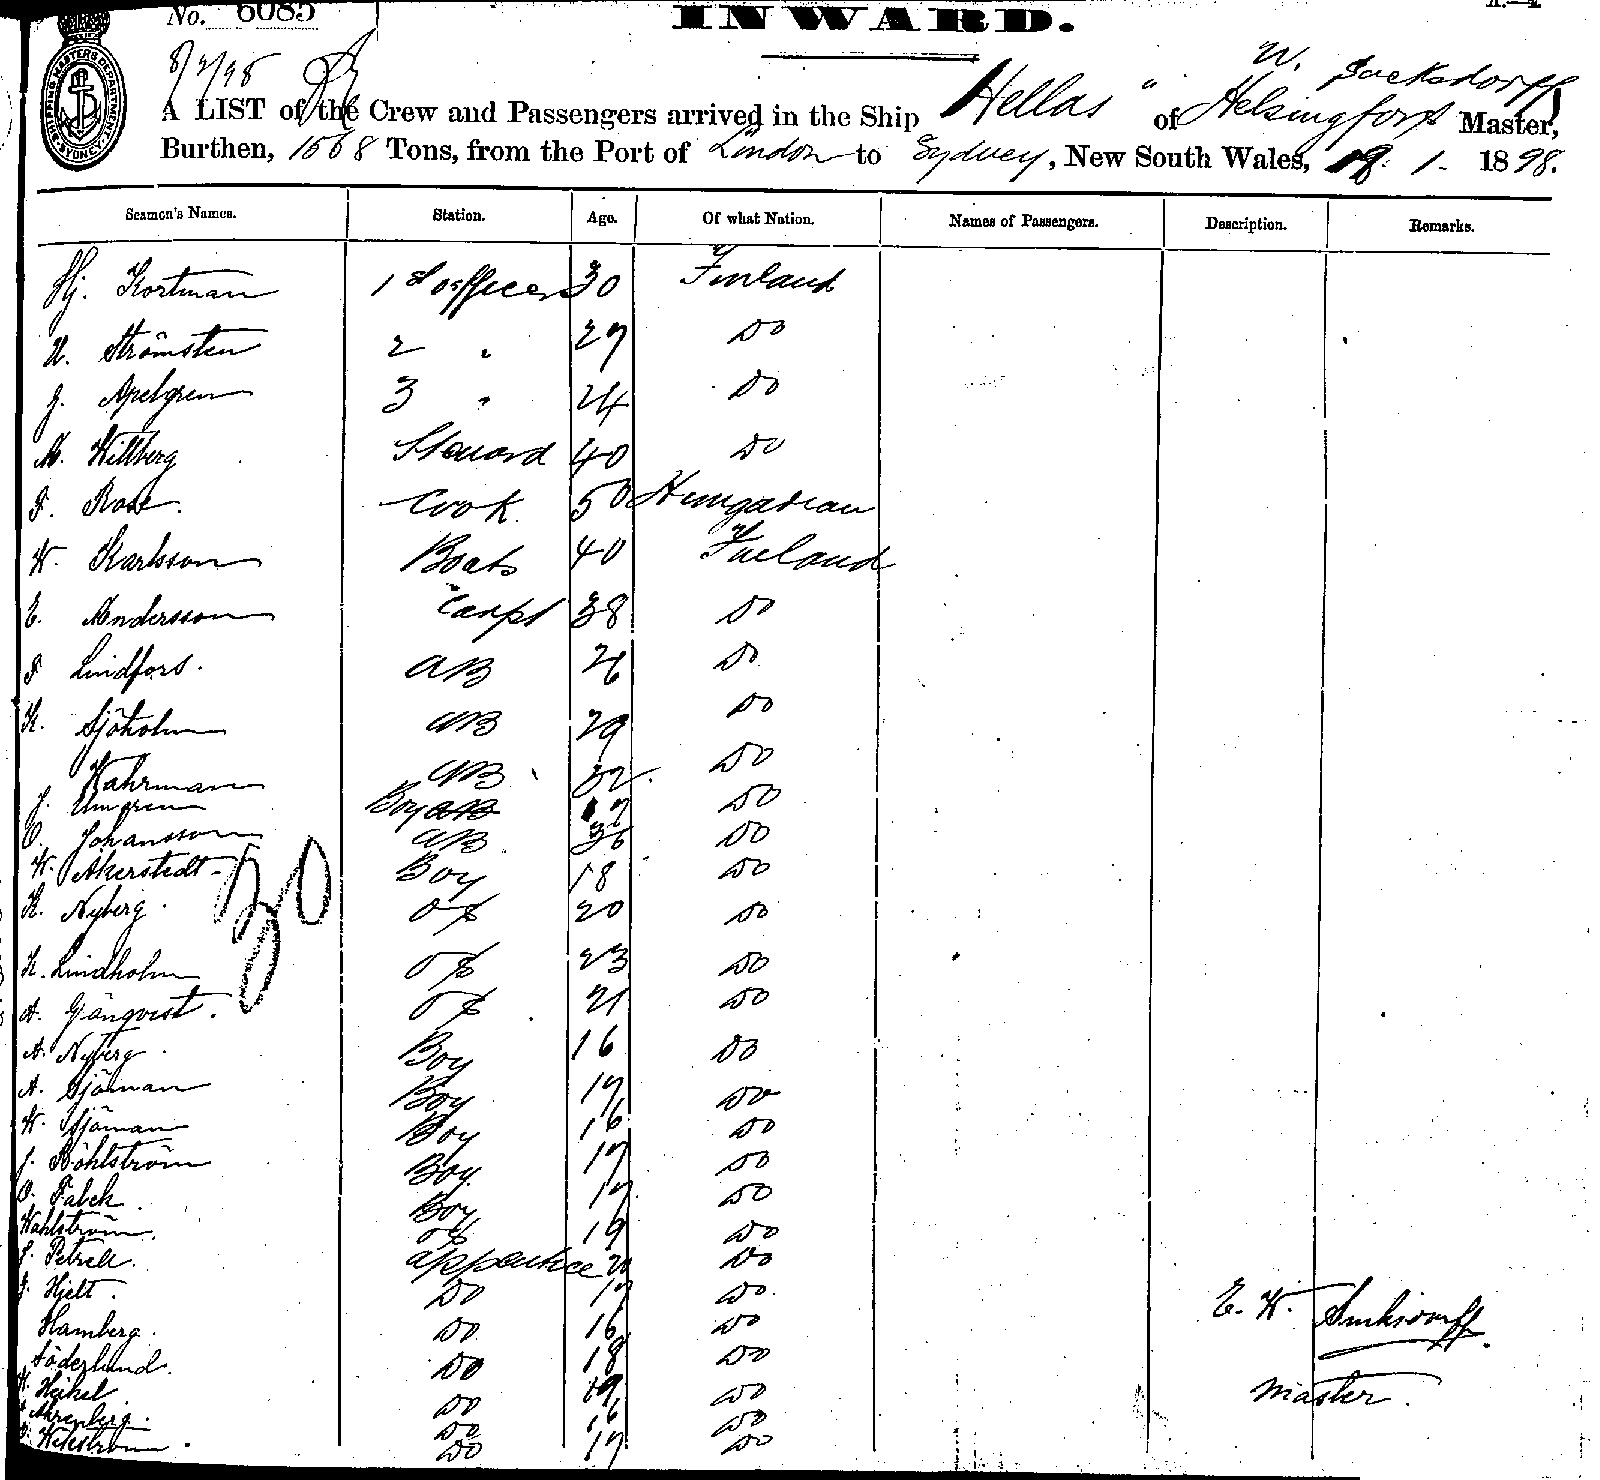 No. 6085
INWARD.
8/2/98
W. Sacksdorff
A LIST of the Crew and Passengers arrived in the Ship Hellas" of Helsingfors Master,
Burthen, 1568 Tons, from the Port of London to Sydney, New South Wales, 19. 1. 1898.
SHIPPING MASTERS DEPARTMENT SYDNEY
Seamen's Names. Station. Age. Of what Nation. Names of Passengers. Description. Remarks.
Hj. Kortman 1st officer 30 Finland
U. Strömsten 2 " 27 Do
J. Apelgren 3 " 24 Do
M. Willberg Steward 40 Do
F. Rose. Cook. 50 Hungarian
W. Karlsson Boats 40 Finland
E. Andersson Carpt 38 Do
F Lindfors. AB 26 Do
K. Sjöholm AB 29 Do
Wahrman AB 32 Do
J. Boy AB 17 Do
O. Johansson AB 36 Do
W. Akerstedt Boy 18 Do
K. Nyberg. OS 20 Do
K. Lindholm OS 23 Do
A. Gånqvist. OS 21 Do
A. Nyberg Boy 16 Do
A. Sjöman Boy 17 Do
W. Sjöman Boy 16 Do
J. Böhlström Boy 17 Do
O. Fabek Boy 17 Do
Wahlström. OS 19 Do
J. Petrell. apprentice 20 Do
J. Hjelt. Do 17 Do.
Hamberg. Do 16 Do
Söderlund. Do 18 Do
Heikel Do 19 Do
Ahrenberg. Do 16 Do
Wekström. Do 17 Do
30
E. W. Sacksdorff.
Master.